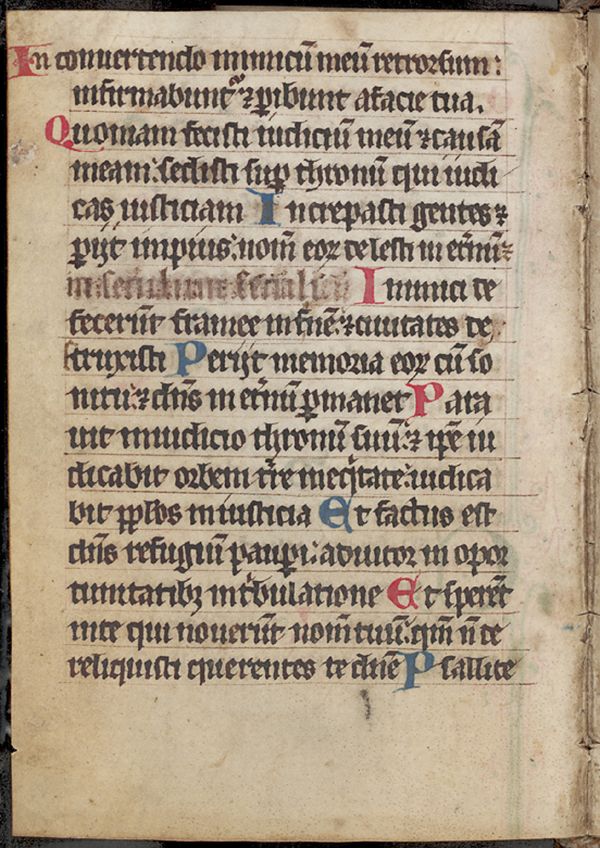 In conuertendo inimicū meū retrorsum:
infirmabunt᷑ ⁊ ꝑibunt a facie tua.
Quoniam fecisti iudiciū meū ⁊ causā
meam: sedisti suꝑ thronū qui iudi
cas iusticiam Increpasti gentes ⁊
ꝑijt impius: nom̄ eoꝝ delesti in et̄nū ⁊
in seculum seculi Inimici de
fecerūt framee in finē: ⁊ ciuitates de
struxisti Perijt memoria eoꝝ cū so
nitu: ⁊ dn̄s in et̄nū ꝑmanet Para
uit in iudicio thronū suū: ⁊ ip̄e iu
dicabit orbem t̄re in eq̇tate: iudica
bit pp̄los in iusticia Et factus est
dn̄s refugiū pauꝑi: adiutor in opor
tunitatibꝫ in t̓bulatione Et sperēt
in te qui nouerūt nom̄ tuū: qm̄ n̄ de
reliquisti querentes te dn̄e Psallite